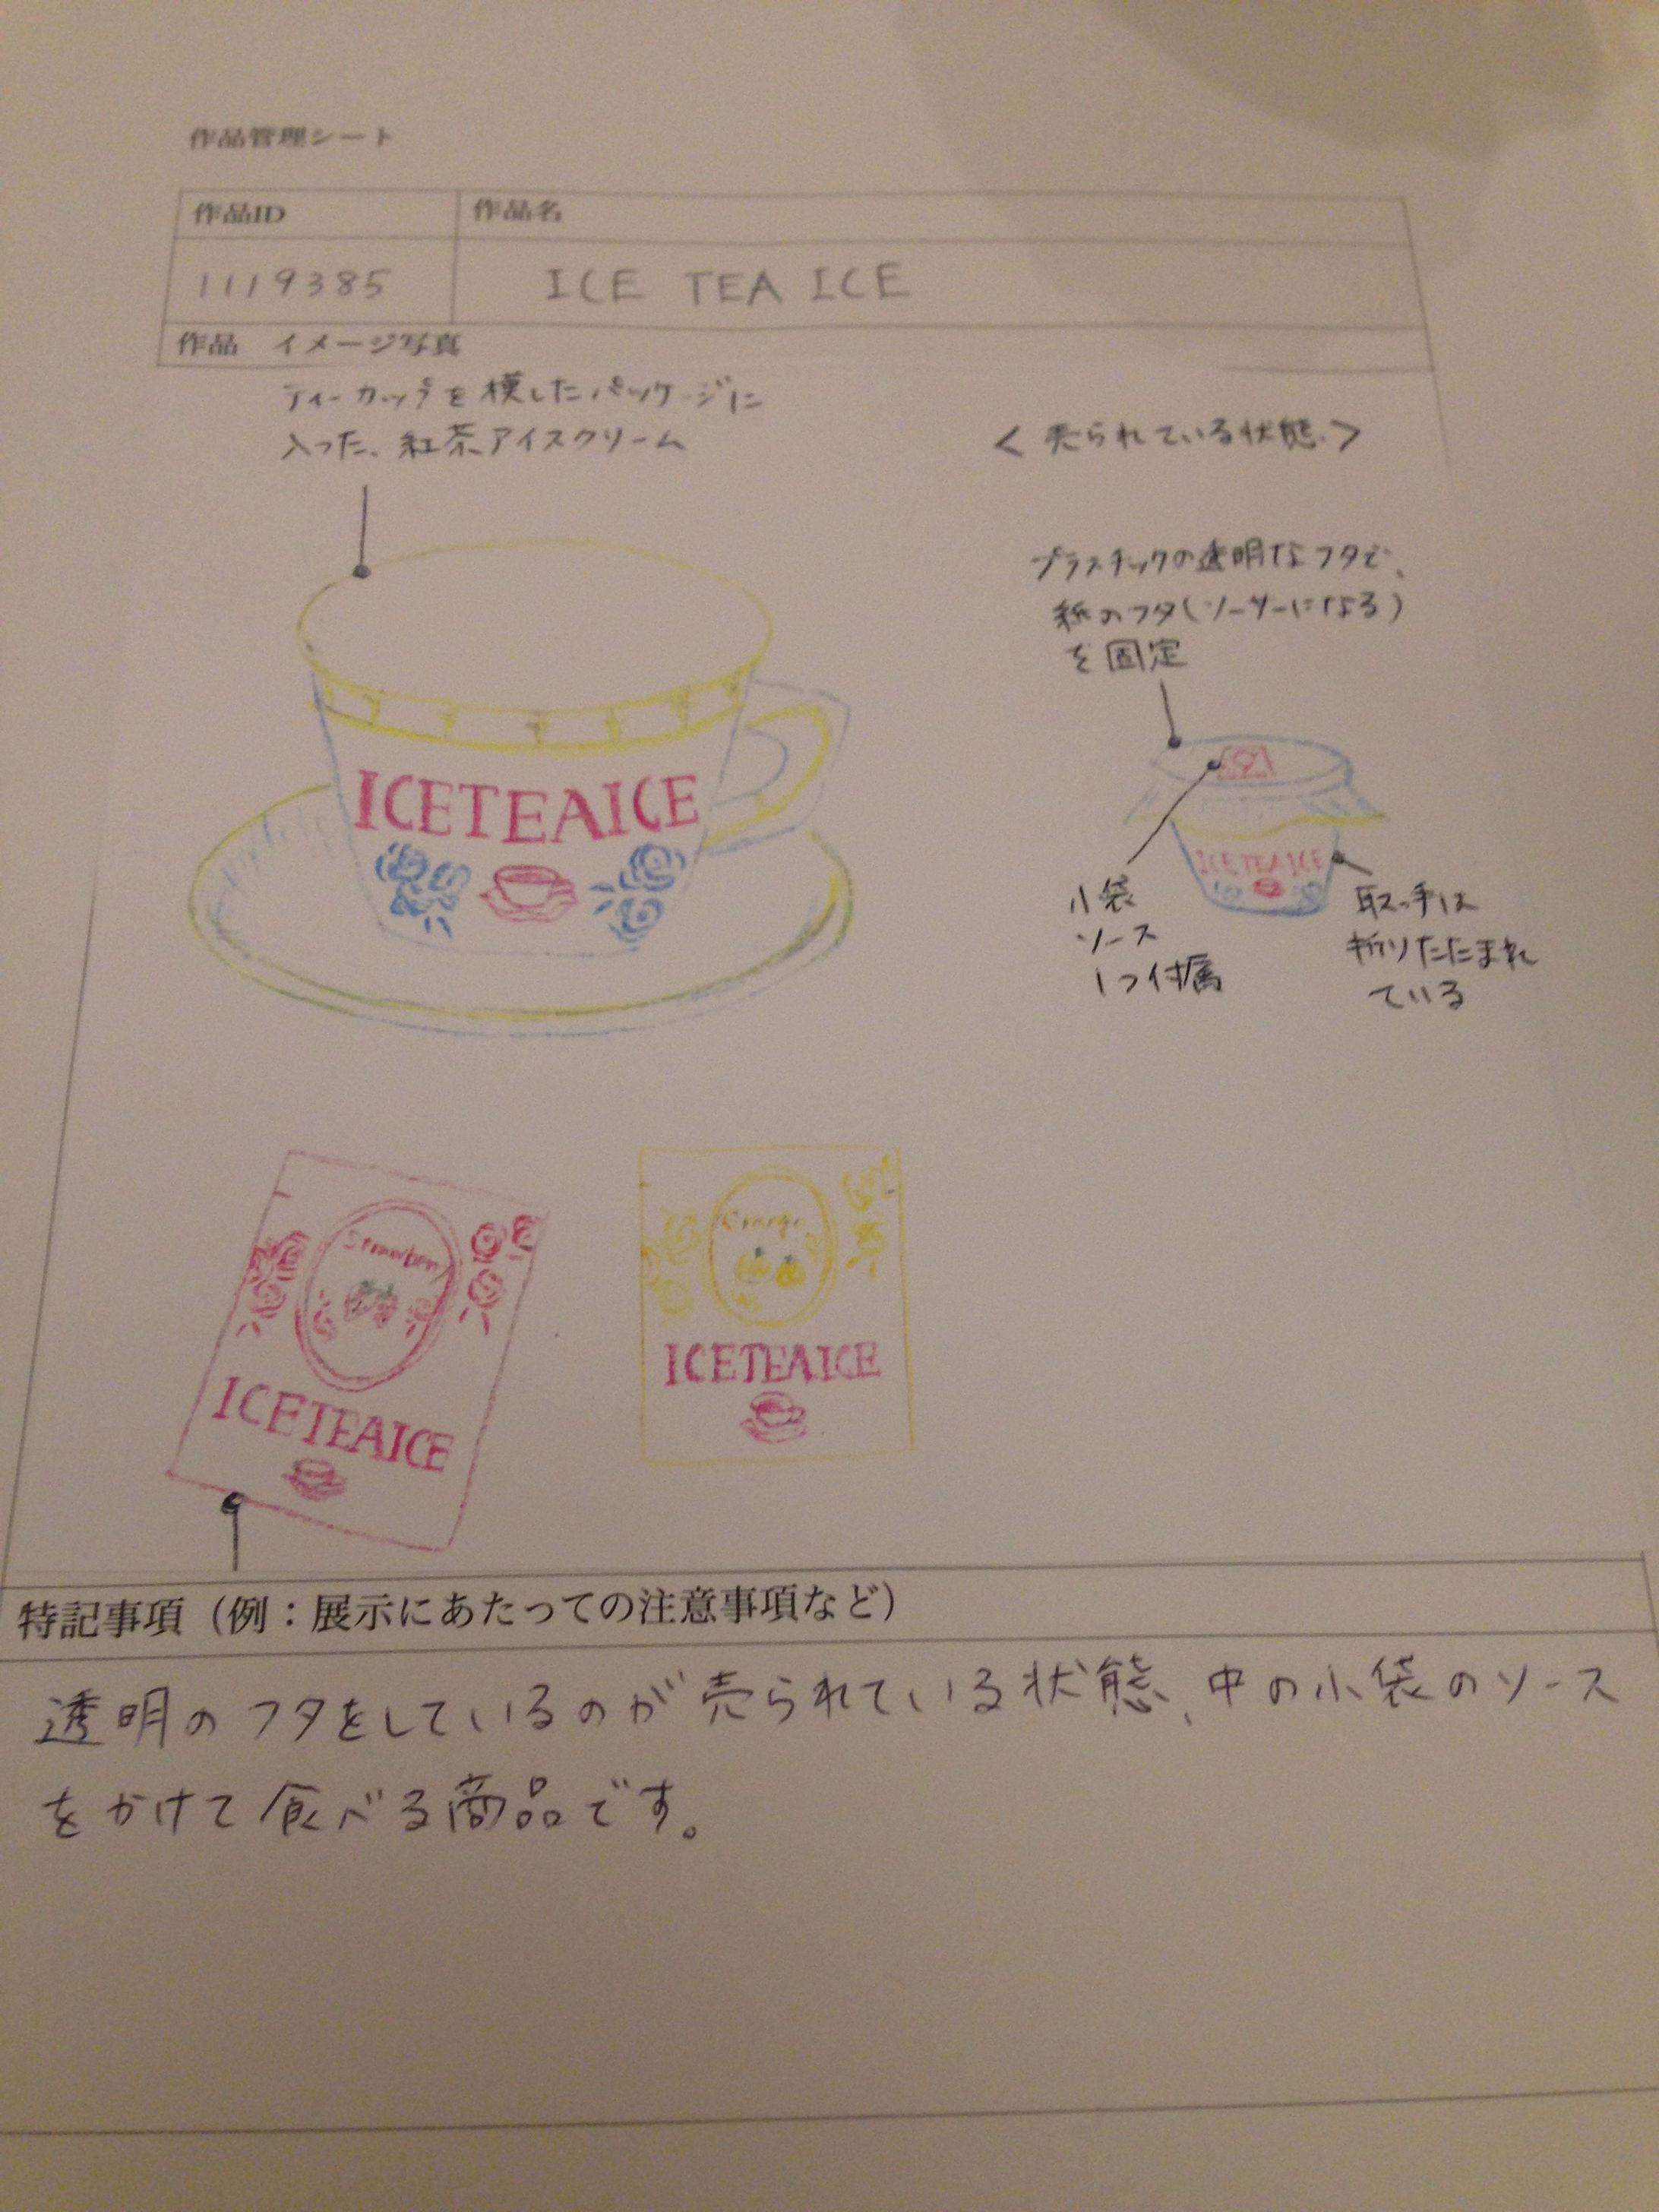 作品管理シート
作品ID
作品名
1119385
ICE TEA ICE
作品 イメージ写真
ティーカップを模したパッケージに
入った、紅茶アイスクリーム
＜売られている状態＞
プラスチックの透明なフタで、
紙のフタ（ソーサーになる）
を固定
ICETEAICE
ICETEAICE
小袋
ソース
1つ付属
取っ手は
折りたたまれ
ている
Strawberry
ICETEAICE
Orange
ICETEAICE
特記事項（例：展示にあたっての注意事項など）
透明のフタをしているのが売られている状態、中の小袋のソース
をかけて食べる商品です。